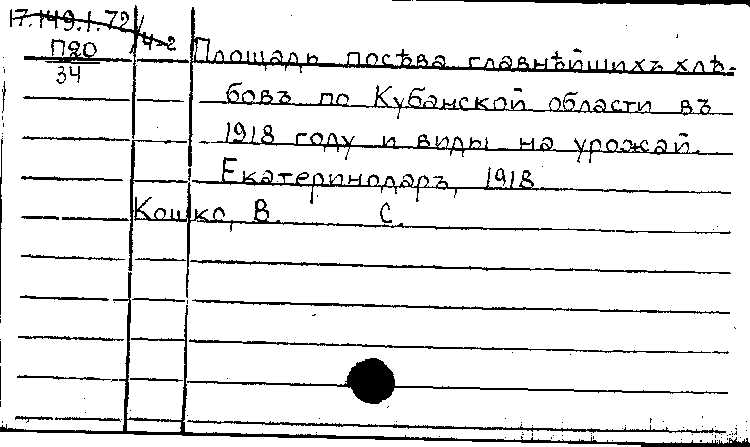 17.149.1.72/4-2
П20
34
Площадь посѣва главнѣйшихъ хлѣ-
бовъ по Кубанской области въ
1918 году и виды на урожай.
Екатеринодаръ, 1918
Кошко, В. С.